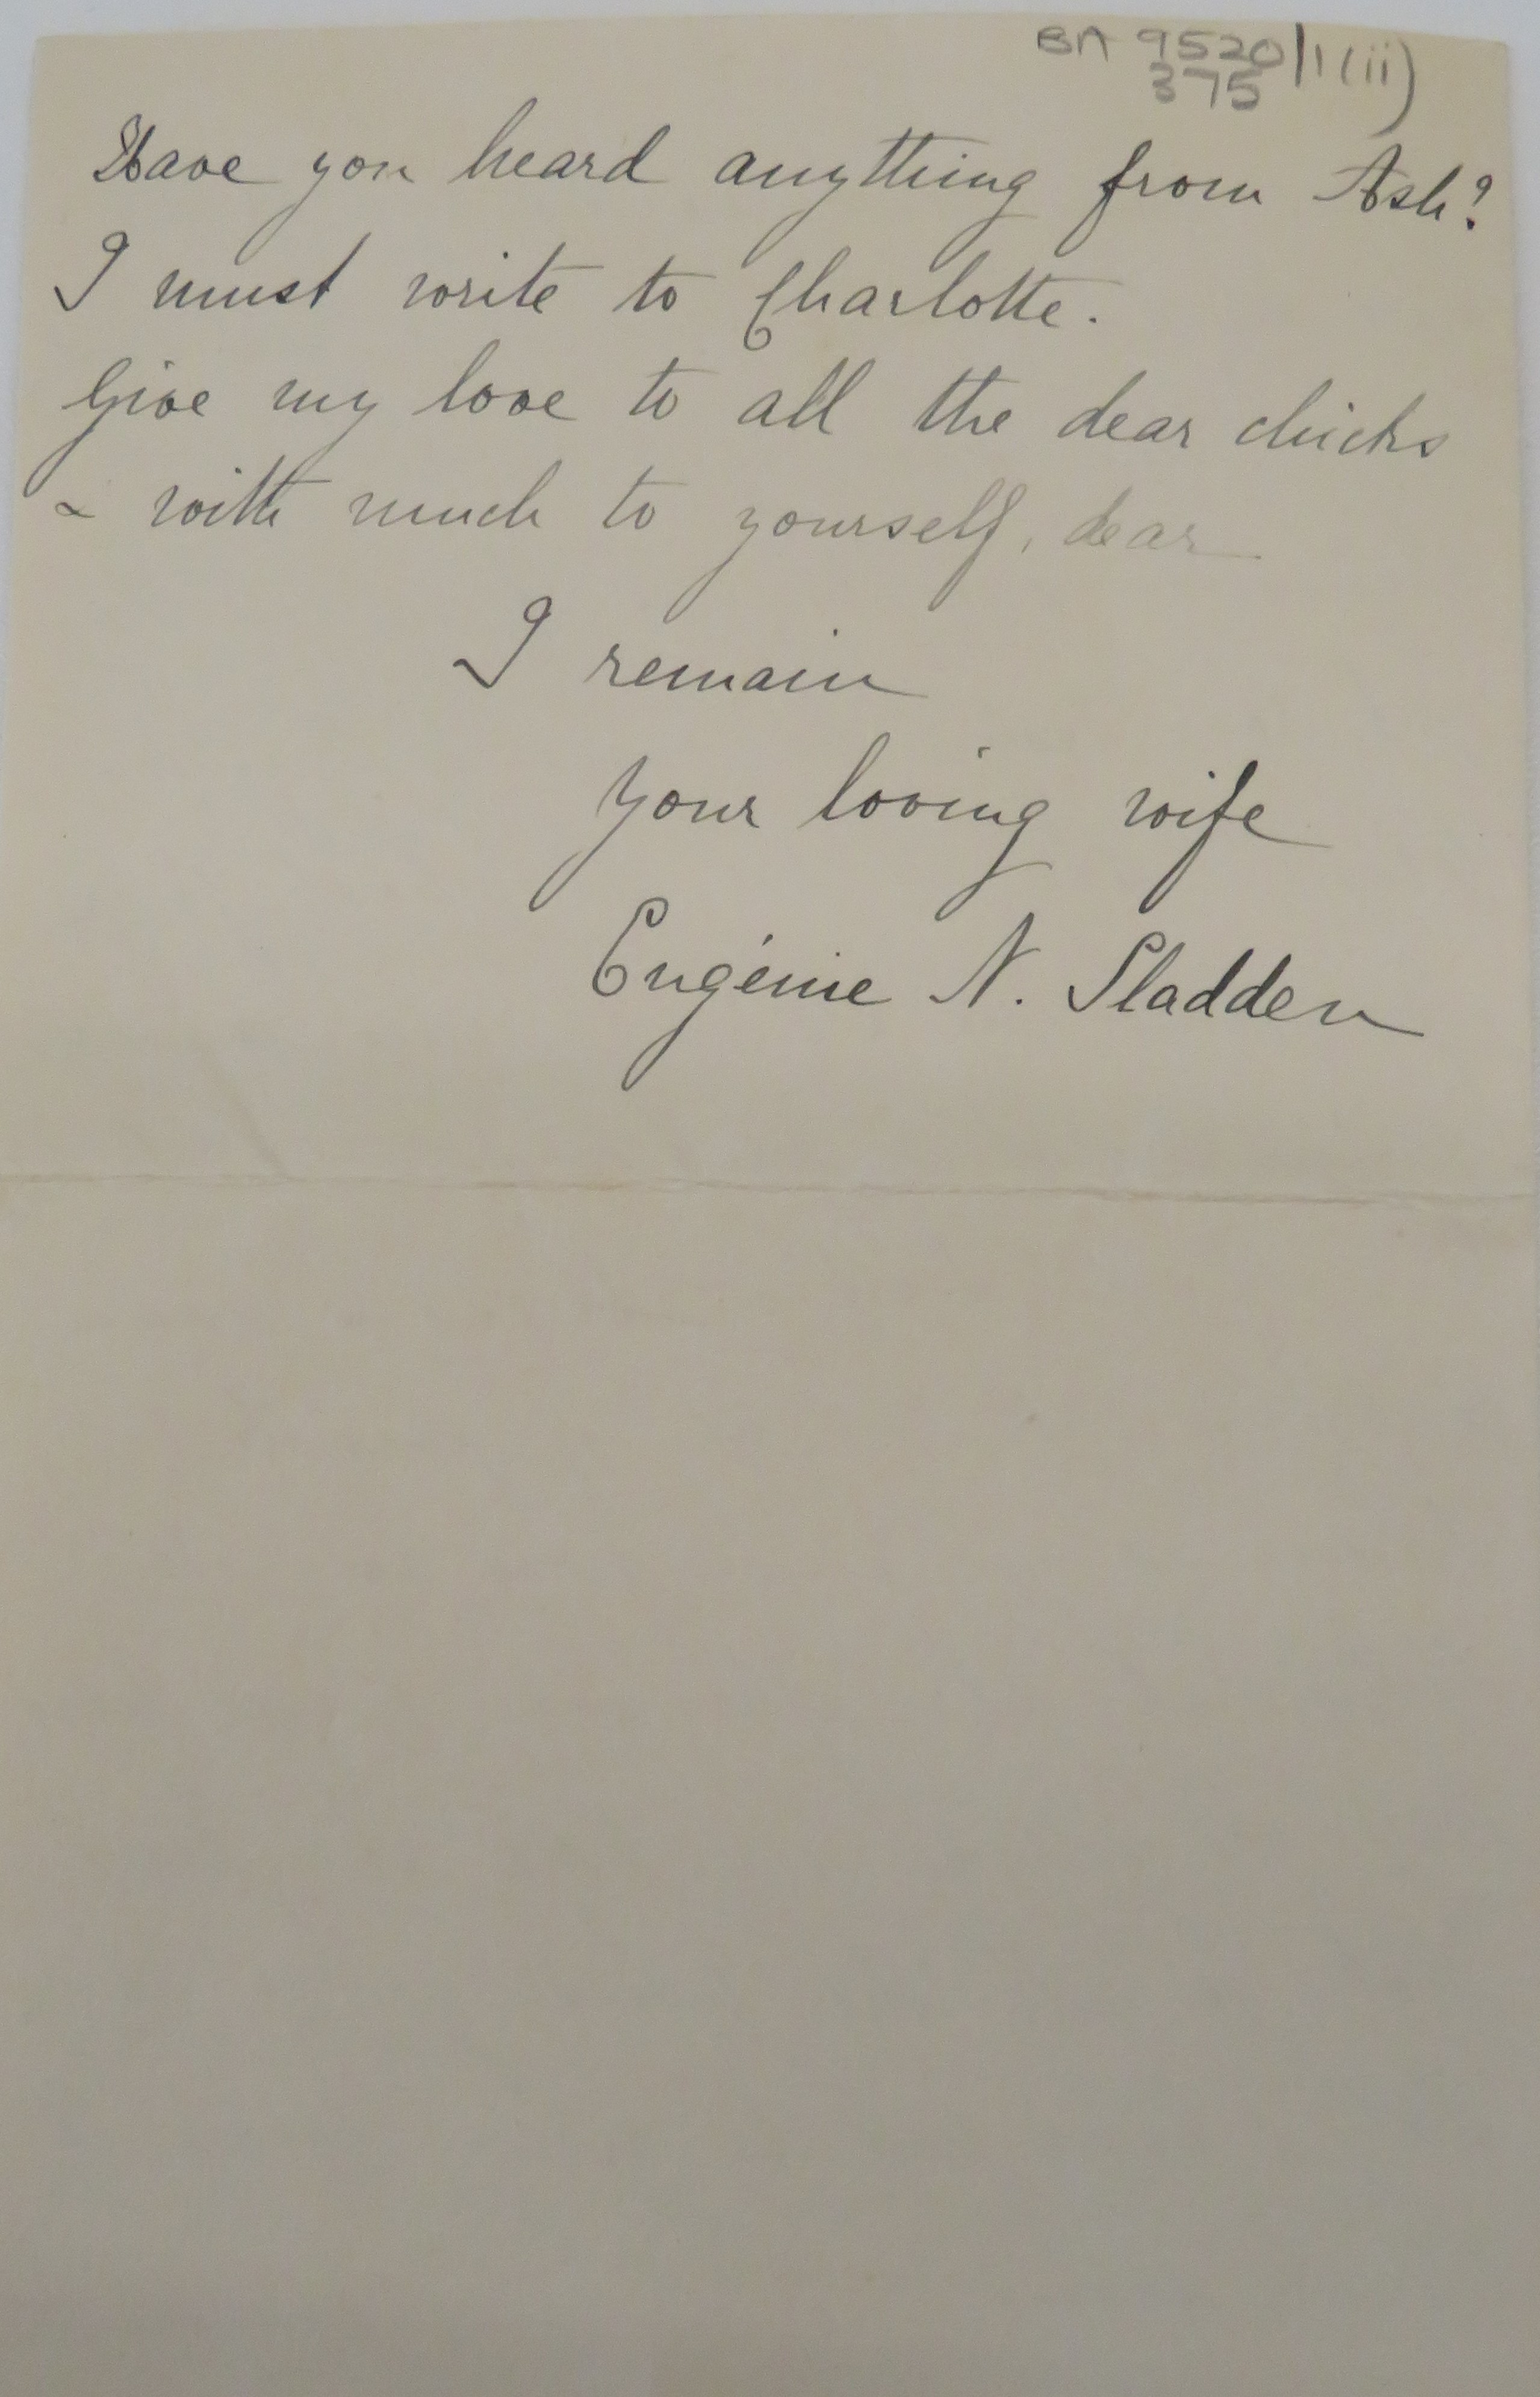 BA 9520/1(ii)
375
Have you heard anything from Ash?
I must write to Charlotte.
Give my love to all the dear chicks
& with much to yourself, dear
I remain
your loving wife
Eugénie N. Sladden